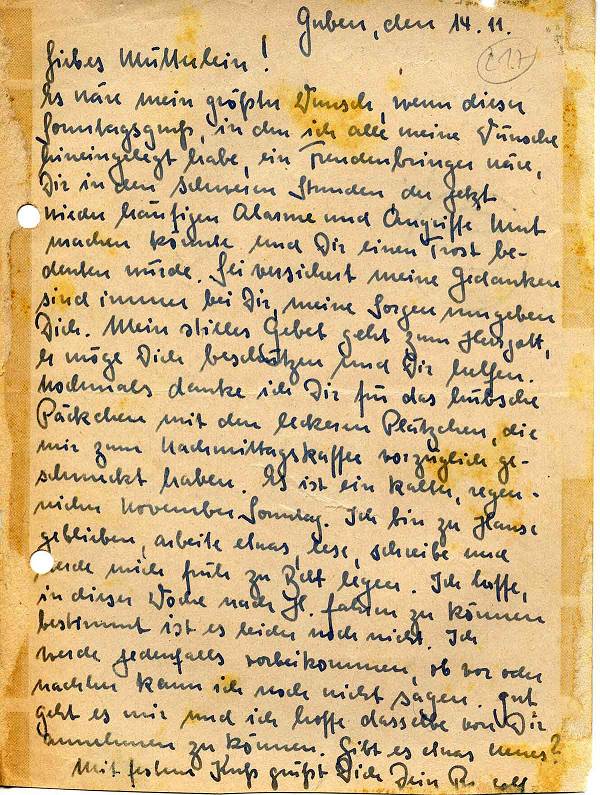 Guben, den 14.11.
Liebes Mütterlein!
Es wäre mein größter Wunsch, wenn dieser
Sonntagsgruß, in den ich alle meine Wünsche
hineingelegt habe, ein Freudenbringer wäre,
Dir in den schweren Stunden, der jetzt
wieder häufigen Alarme und Angriffe Mut
machen könnte und Dir einen Trost be-
deuten würde. Sei versichert meine Gedanken
sind immer bei Dir, meine Sorgen umgeben
Dich. Mein stilles Gebet geht zum Herrgott,
er möge Dich beschützen und Dir helfen.
Nochmals danke ich Dir für das hübsche
Päckchen mit den leckeren Plätzchen, die
mir zum Nachmittagskaffee vorzüglich ge-
schmeckt haben. Es ist ein kalter, regen-
reicher November Sonntag. Ich bin zu Hause
geblieben, arbeite etwas, lese, schreibe und
werde mich früh zu Bett legen. Ich hoffe,
in dieser Woche nach fahren zu können
bestimmt ist es leider noch nicht. Ich
werde jedenfalls vorbeikommen, ob vor oder
nachher kann ich noch nicht sagen. Gut
geht es mir und ich hoffe dasselbe von Dir
annehmen zu können. Gibt es etwas neues?
Mit frohem Kuß grüßt Dich Dein